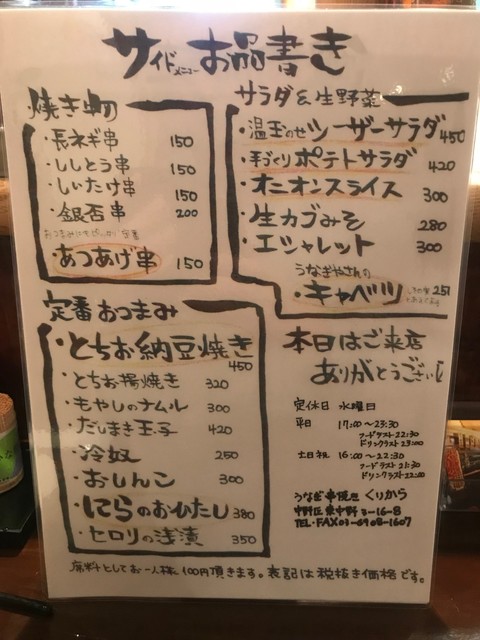 サイドメニューお品書き
焼き物
・長ネギ串 150
・ししとう串 150
・しいたけ串 150
・銀杏串 200
おつまみにもピッタリ 定番
・あつあげ串 150
サラダ&生野菜
・温玉のせシーザーサラダ 450
・手づくりポテトサラダ 420
・オニオンスライス 300
・生カブみそ 280
・エシャレット 300
うなぎやさんの
・キャベツ 250
定番おつまみ
・とちお納豆焼き 450
・とちお揚焼き 320
・もやしのナムル 300
・だしまき玉子 420
・冷奴 250
・おしんこ 300
・にらのおひたし 380
・セロリの浅漬 350
本日はご来店
ありがとうござい
定休日 水曜日
平日 17:00~23:30
フードラスト22:30
ドリンクラスト23:00
土日祝 16:00~22:30
フードラスト21:30
ドリンクラスト22:00
うなぎ串焼き くりから
中野区東中野3-16-8
TEL・FAX03-6908-1607
席料としてお一人様100円頂きます。表記は税抜き価格です。